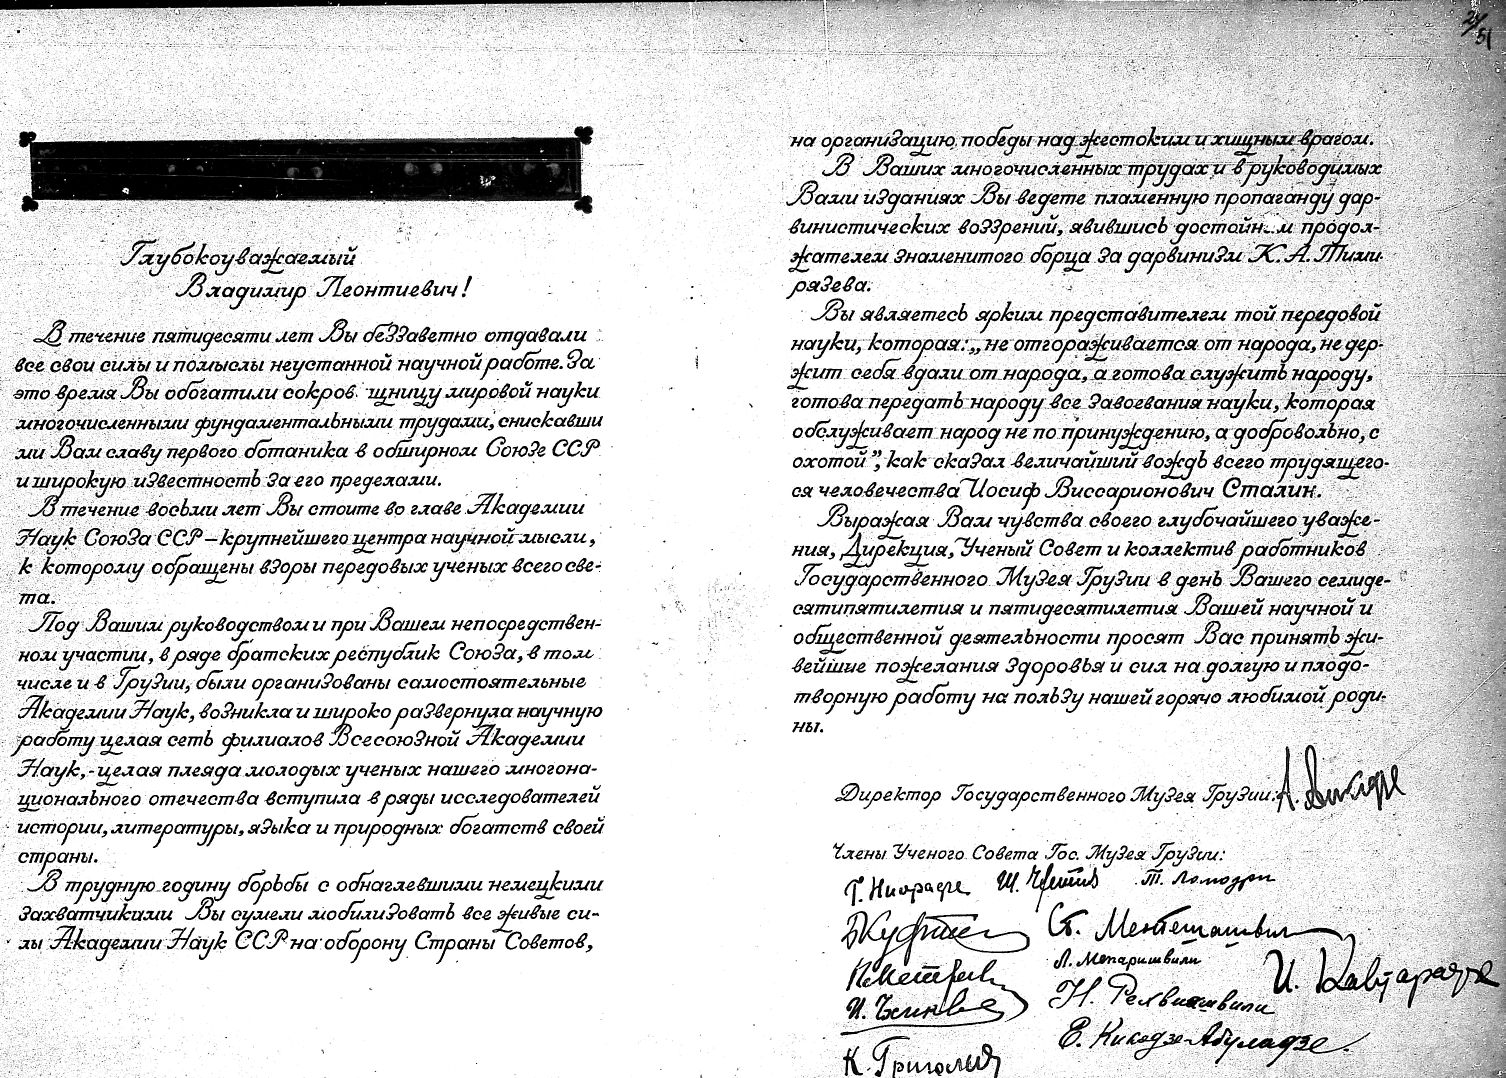 24
51
Глубокоуважаемый
Владимир Леонтиевич!
В течение пятидесяти лет Вы беззаветно отдавали
все свои силы и помыслы неустанной научной работе. За
это время Вы обогатили сокров щницу мировой науки
многочисленными фундаментальными трудами, снискавши
ми Вам славу первого ботаника в обширном Союзе ССР
и широкую известность за его пределами.
В течение восьми лет Вы стоите во главе Академии
Наук Союза ССР – крупнейшего центра научной мысли,
к которому обращены взоры передовых ученых всего све-
та.
Под Вашим руководством и при Вашем непосредствен-
ном участии, в ряде братских республик Союза, в том
числе и в Грузии, были организованы самостоятельные
Академии Наук, возникла и широко развернула научную
работу целая сеть филиалов Всесоюзной Академии
Наук,- целая плеяда молодых ученых нашего многона-
ционального отечества вступила в ряды исследователей
истории, литературы, языка и природных богатств своей
страны.
В трудную годину борьбы с обнаглевшими немецкими
захватчиками Вы сумели мобилизовать все живые си-
лы Академии Наук СССР на оборону Страны Советов,
на организацию победы над жестоким и хищным врагом.
В Ваших многочисленных трудах и в руководимых
Вами изданиях Вы ведете пламенную пропаганду дар-
винистических воззрений, явившись достойн м продол-
жателем знаменитого борца за дарвинизм К. А. Тими-
рязева.
Вы являетесь ярким представителем той передовой
науки, которая: „не отгораживается от народа, не дер-
жит себя вдали от народа, а готова служить народу,
готова передать народу все завоевания науки, которая
обслуживает народ не по принуждению, а добровольно, с
охотой”, как сказал величайший вождь всего трудящего-
ся человечества Иосиф Виссарионович Сталин.
Выражая Вам чувства своего глубочайшего уваже-
ния, Дирекция, Ученый Совет и коллектив работников
Государственного Музея Грузии в день Вашего семиде-
сятипятилетия и пятидесятилетия Вашей научной и
общественной деятельности просят Вас принять жи-
вейшие пожелания здоровья и сил на долгую и плодо-
творную работу на пользу нашей горячо любимой роди-
ны.
Директор Государственного Музея Грузии:
Члены Ученого Совета Гос. Музея Грузии:
Г. Ниорадзе
Т. Ломоури
Ст. Ментешашвили
Л. Мепаришвили
И. Кавтарадзе
Н. Рехвиашвили
Е. Кикодзе-Абуладзе
К. Григолия